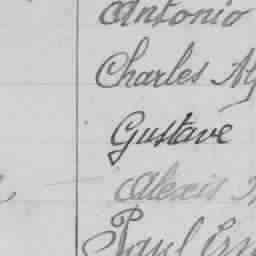 Antonio
Charles
Gustave
Alexis
Paul